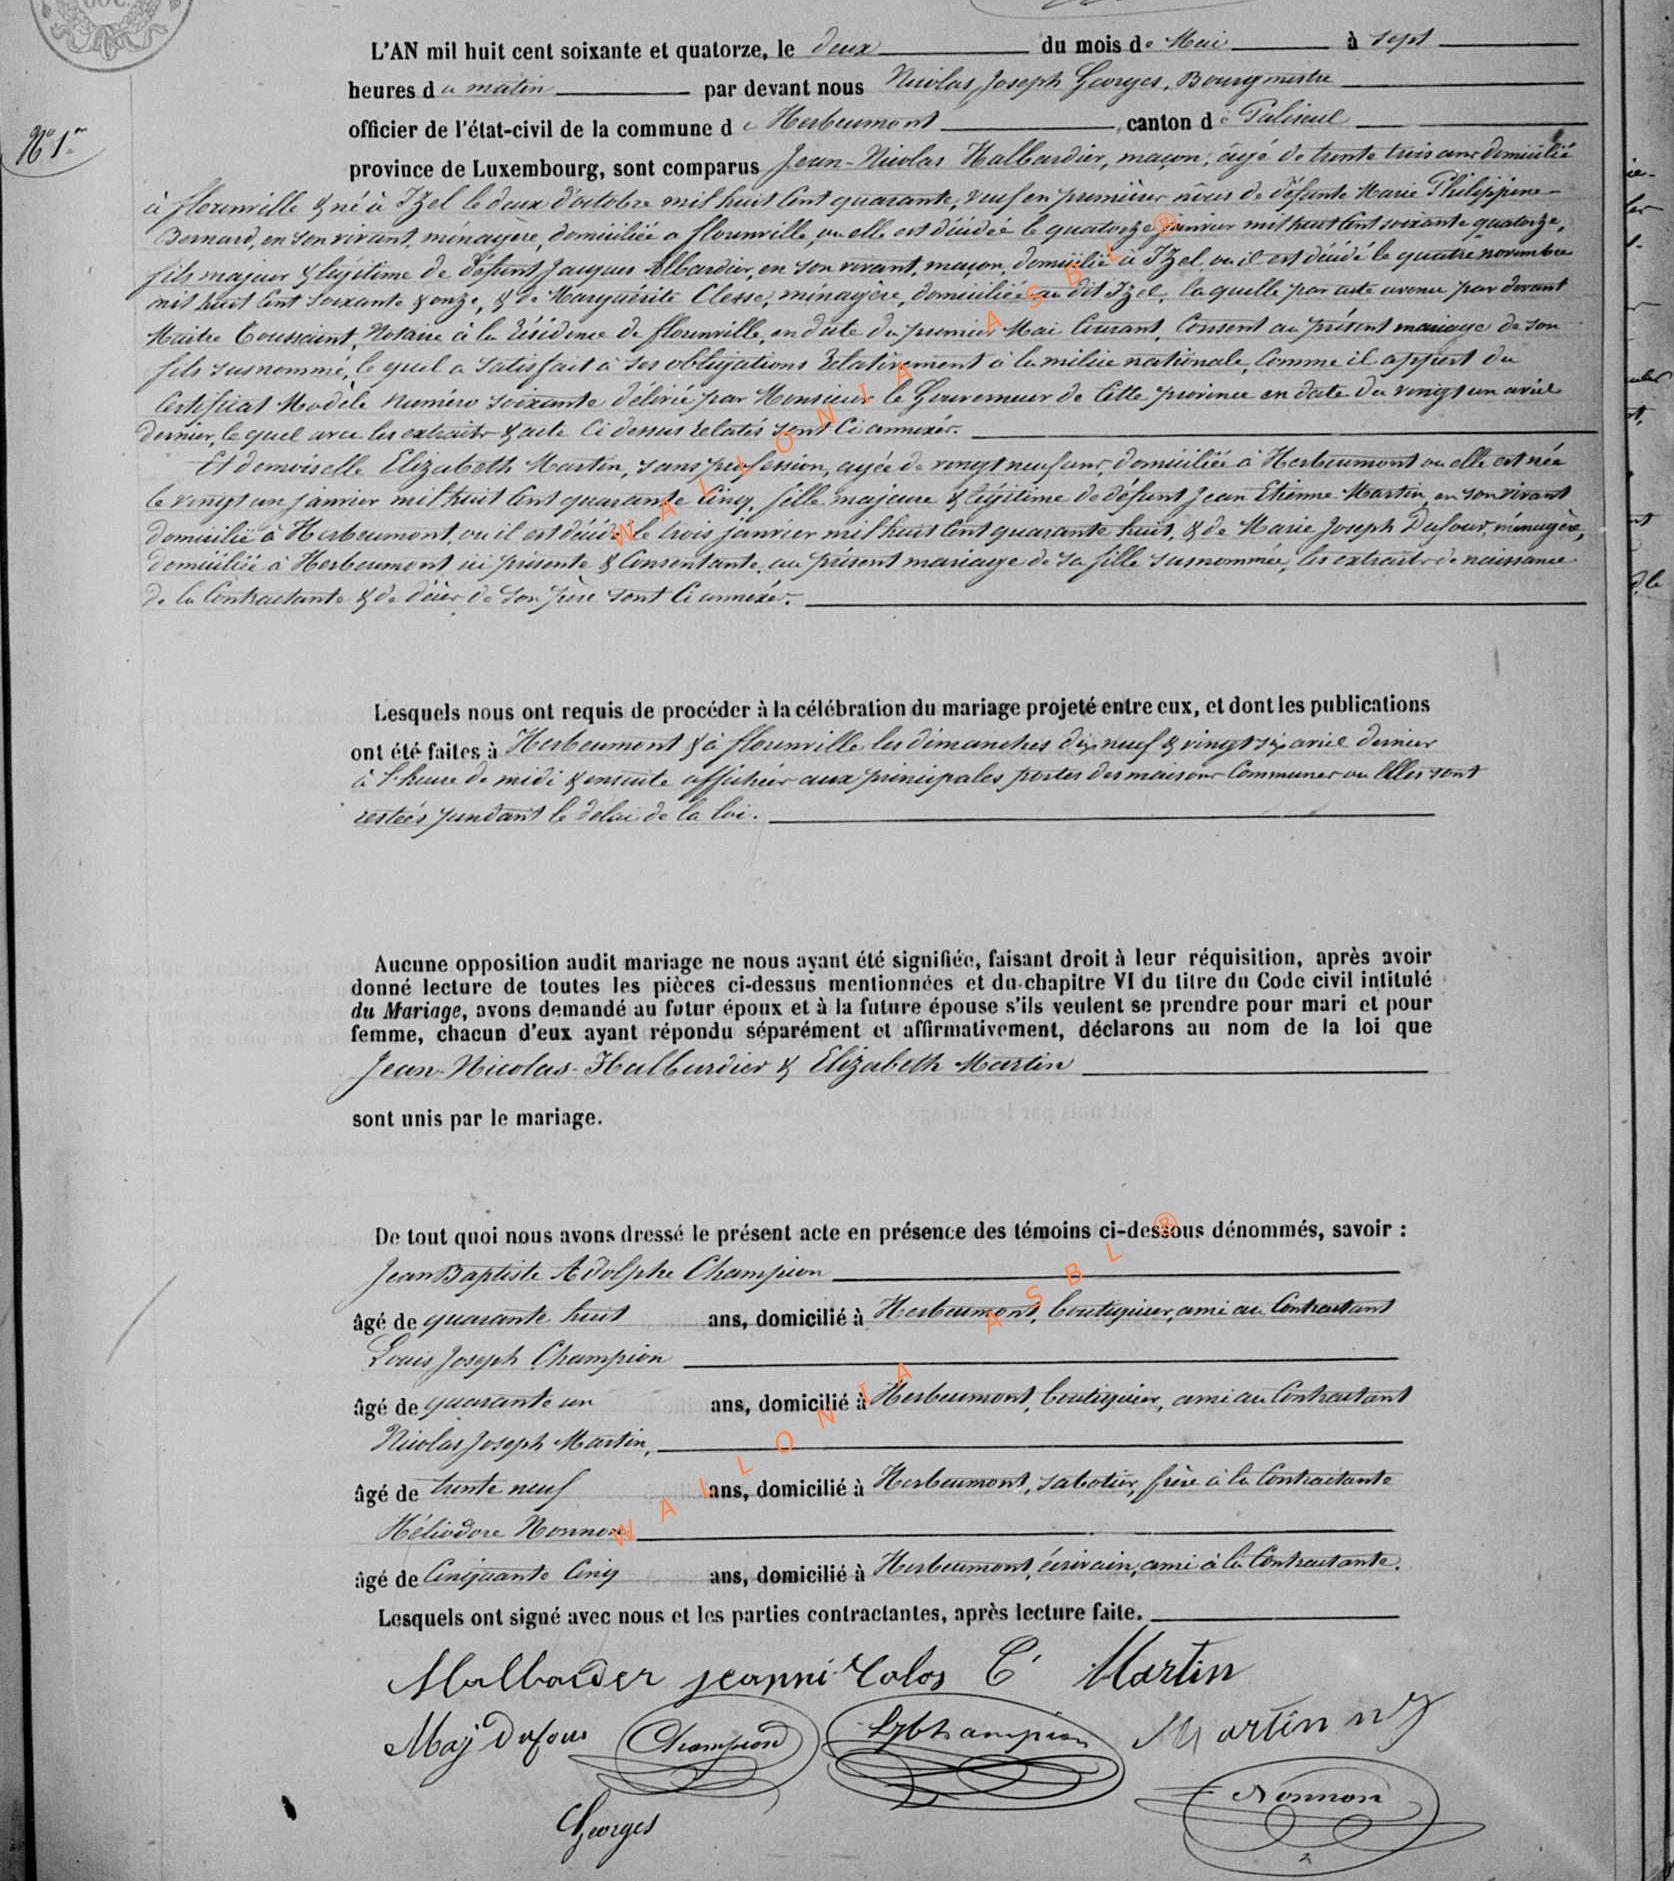 L'AN mil huit cent soixante et quatorze, le deux du mois de Mai à sept
heures du matin par devant nous Nicolas Joseph Georges, Bourgmestre
officier de l'état-civil de la commune de Herbeumont canton de Paliseul
N° 1er
province de Luxembourg, sont comparus Jean-Nicolas Halbardier, maçon, âgé de trente trois ans domicilié
à florenville & né à Izel le deux d'octobre mil huit cent quarante, veuf en premières nôces de défunte Marie Philippine
Bernard, en son vivant, ménagère, domiciliée a florenville, ou elle est décédée le quatorze janvier mil huit cent soixante quatorze,
fils majeur & légitime de défunt Jacques Albardier, en son vivant, maçon, domicilié à Izel, ou il est décédé le quatre novembre
mil huit cent soixante & onze, & de Marguérite Clesse, ménagère, domiciliée au dit Izel, laquelle par acte avenu par devant
Maître Toussaint, Notaire à la Résidence de florenville, en date du premier Mai courant, consent au présent mariage de son
fils susnommé, le quel a satisfait à ses obligations relativement à la milice nationale, comme il appert du
certificat Modèle numéro soixante délivré par Monsieur le Gouverneur de cette province en date du vingt un avril
dernier, le quel avec les extraits & acte ci dessus relatés sont ci annexés.
Et demoiselle Elizabeth Martin, sans profession, agée de vingt neuf ans, domiciliée à Herbeumont ou elle est née
le vingt un janvier mil huit cent quarante cinq, fille majeure & légitime de défunt Jean Etienne Martin, en son vivant
domicilié à Herbeumont, ou il est décédé le trois janvier mil huit cent quarante huit, & de Marie Joseph Dufour, ménagère,
domiciliée à Herbeumont ici présente & consentante, au présent mariage de sa fille susnommée, les extraits de naissance
de la contractante & de décès de son père sont ci annexés.
Lesquels nous ont requis de procéder à la célébration du mariage projeté entre eux, et dont les publications
ont été faites à Herbeumont & à florenville les dimanches dix neuf & vingt six avril dernier
à l'heure de midi & ensuite affichées aux principales portes des maisons communes ou elles sont
restées pendant le delai de la loi.
Aucune opposition audit mariage ne nous ayant été signifiée, faisant droit à leur réquisition, après avoir
donné lecture de toutes les pièces ci-dessus mentionnées et du chapitre VI du titre du Code civil intitulé
du Mariage, avons demandé au futur époux et à la future épouse s'ils veulent se prendre pour mari et pour
femme, chacun d'eux ayant répondu séparément et affirmativement, déclarons au nom de la loi que
Jean-Nicolas-Halbardier & Elizabeth Martin
sont unis par le mariage.
De tout quoi nous avons dressé le présent acte en présence des témoins ci-dessous dénommés, savoir :
Jean Baptiste Adolphe Champion
âgé de quarante huit ans, domicilié à Herbeumont, boutiquier, ami au contractant
Louis Joseph Champion
âgé de quarante un ans, domicilié à Herbeumont, boutiquier, ami au contractant
Nicolas Joseph Martin,
âgé de trente neuf ans, domicilié à Herbeumont, sabotier, frère à la contractante
Héliodore Nonnon
âgé de cinquante cinq ans, domicilié à Herbeumont, écrivain, ami à la contractante.
Lesquels ont signé avec nous et les parties contractantes, après lecture faite.
E Martin
Maj Dufour Champion Champion Martin nj
Georges Nonnon
WALLONIA ASBL ®
WALLONIA ASBL ®